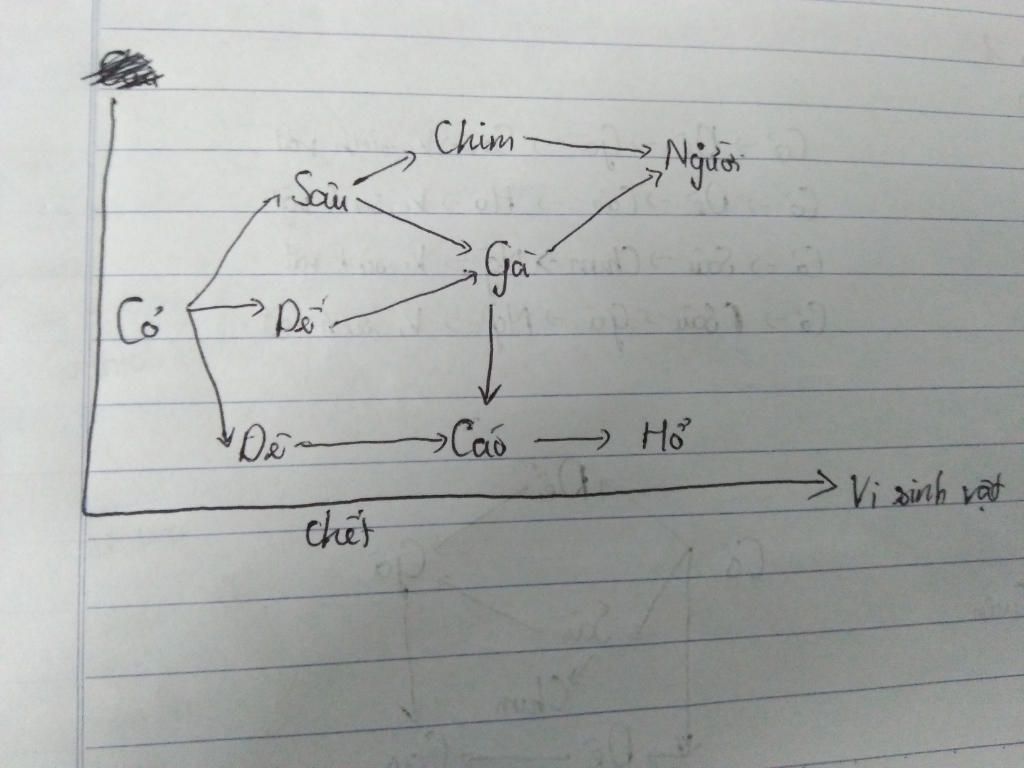 Chim
Người
Sâu
Gà
Cỏ
Dế
Dê
Cáo
Hổ
Vi sinh vật
Chết